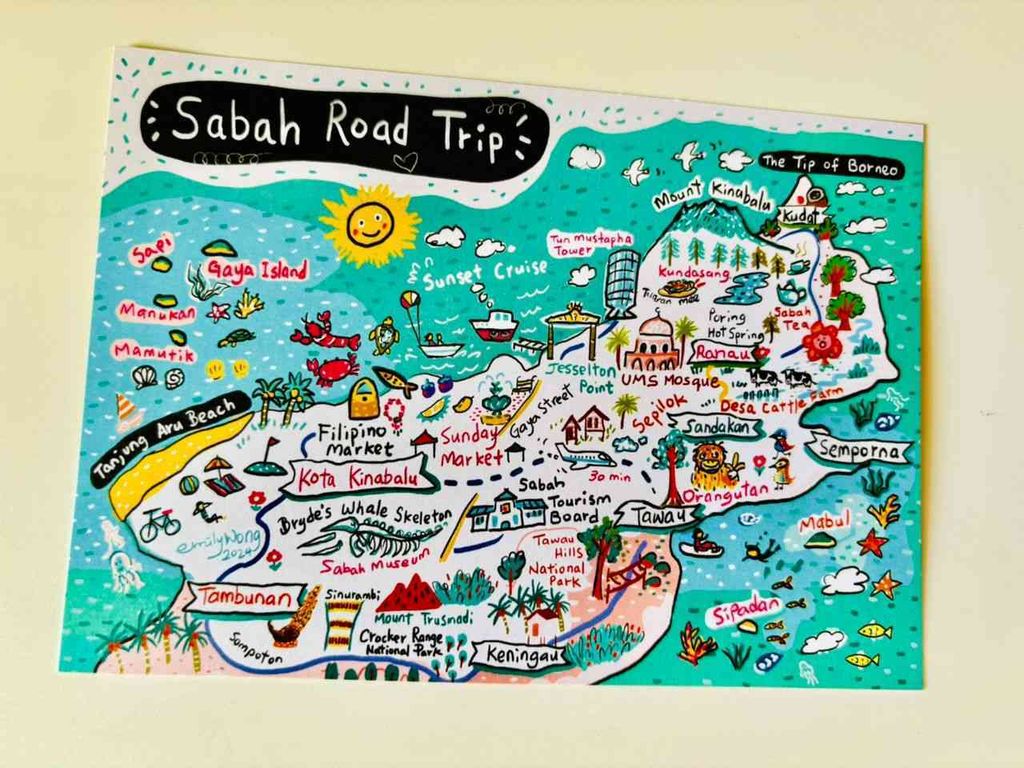 Sabah Road Trip
The Tip of Borneo
Mount Kinabalu
Kudat
Sapi
Gaya Island
Tun mustapha
Tower
Sunset Cruise
Kundasang
Tuaran mee
Manukan
Poring
Hot Spring
Sabah
Tea
Mamutik
Jesselton
Point
Ranau
UMS Mosque
Desa Cattle Farm
Tanjung Aru Beach
Gaya Street
Sepilok
Filipino
Market
Sunday
Market
Sandakan
Semporna
Kota Kinabalu
30 min
Orangutan
Sabah
Tourism
Board
Bryde's Whale Skeleton
Tawau
Mabul
emilywong
2024
Sabah Museum
Tawau
Hills
National
Park
Tambunan
Sinurambi
Mount Trusmadi
Sipadan
Crocker Range
National Park
Sompoton
Keningau